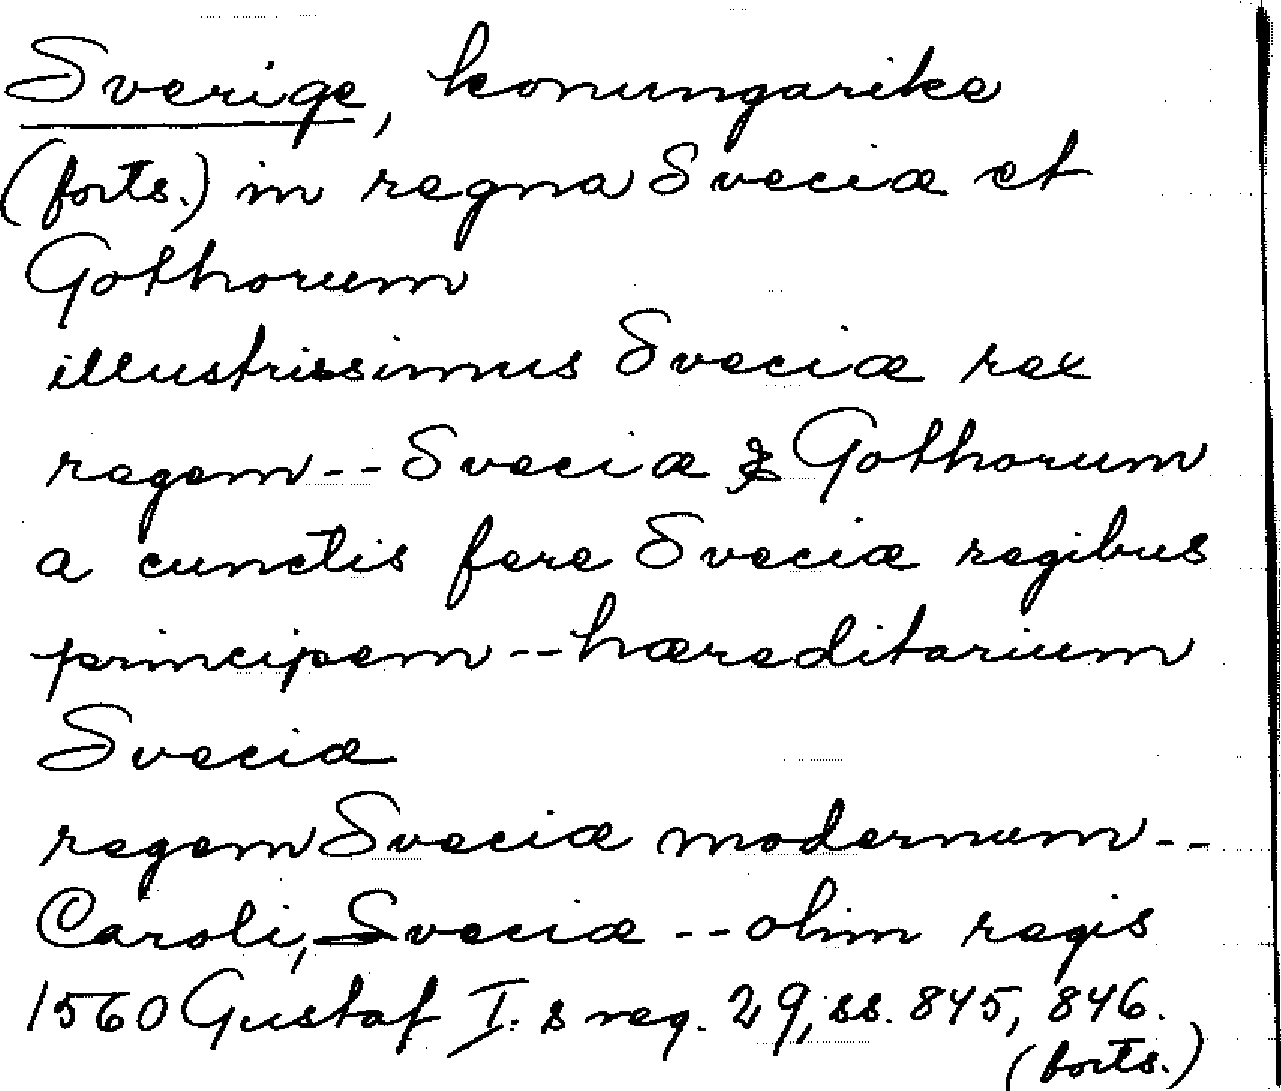 Sverige, konungarike
(forts.) in regna Sveciæ et
Gothorum
illustrissimus Sveciæ rex
regem -- Sveciæ & Gothorum
a cunctis fere Sveciæ regibus
principem -- hæreditarium
Sveciæ
regem Sveciæ modernum --
Caroli, Sveciæ -- olim regis
1560 Gustaf I:s reg. 29, ss. 845, 846.
(forts.)